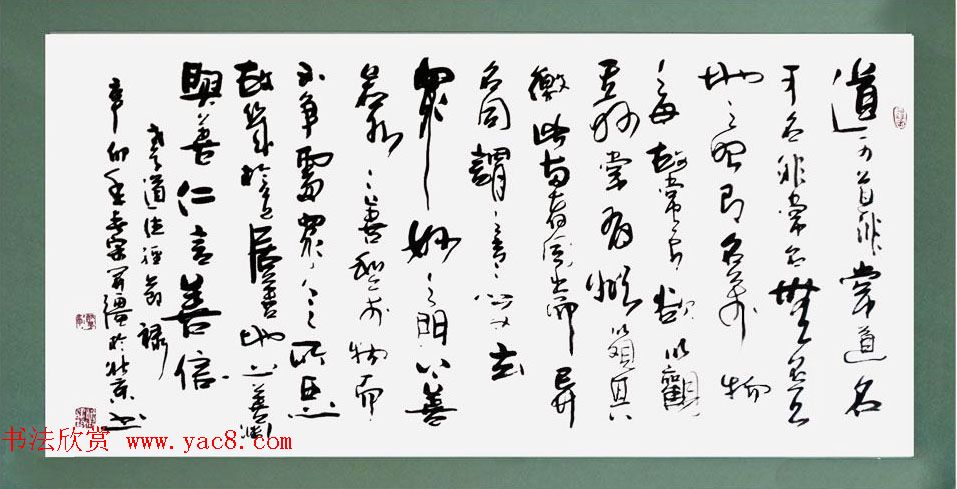 道可道非常道名
可名非常名無名天
地之始有名萬物
之母故常無欲以觀
其妙常有欲以觀其
徼此两者同出而異
名同謂之玄之又玄
眾妙之門上善
若水水善利萬物而
不争處眾人之所惡
故幾於道居善地心善淵
與善仁言善信
老子道德經節録
辛卯於北京
书法欣赏 www.yac8.com